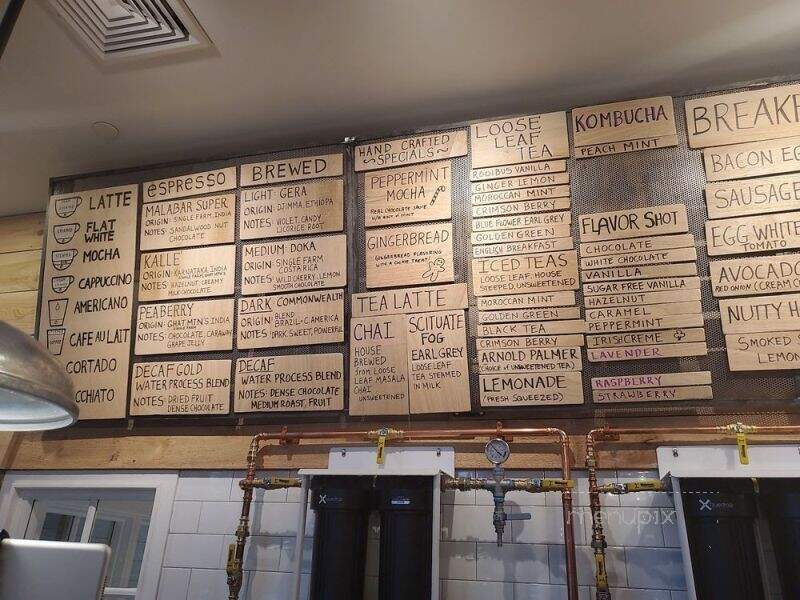 LATTE
FLAT
WHITE
MOCHA
CAPPUCCINO
AMERICANO
CAFE AU LAIT
CORTADO
CCHIATO
espresso
MALABAR SUPER
ORIGIN: SINGLE FARM, INDIA
NOTES: SANDALWOOD NUT
CHOCOLATE
KALLE
ORIGIN: KARNATAKA, INDIA
NOTES: HAZELNUT, CREAMY
MILK CHOCOLATE
PEABERRY
ORIGIN: GHAT MTN'S INDIA
NOTES: CHOCOLATE, CARAWAY
GRAPE JELLY
DECAF GOLD
WATER PROCESS BLEND
NOTES: DRIED FRUIT
DENSE CHOCOLATE
BREWED
LIGHT GERA
ORIGIN: DJIMMA, ETHIOPIA
NOTES: VIOLET, CANDY
LICORICE ROOT
MEDIUM DOKA
ORIGIN: SINGLE FARM
COSTA RICA
NOTES: WILD CHERRY, LEMON
SMOOTH CHOCOLATE
DARK COMMONWEALTH
ORIGIN: BLEND
BRAZIL-C. AMERICA
NOTES: DARK, SWEET, POWERFUL
DECAF
WATER PROCESS BLEND
NOTES: DENSE CHOCOLATE
MEDIUM ROAST, FRUIT
HAND CRAFTED
~SPECIALS~
PEPPERMINT
MOCHA
REAL CHOCOLATE SAUCE
GINGERBREAD
GINGERBREAD FLAVORING
WITH A COOKIE TREAT
TEA LATTE
CHAI
HOUSE
BREWED
from LOOSE
LEAF MASALA
CHAI
UNSWEETENED
SCITUATE
FOG
EARL GREY
LOOSE LEAF
TEA STEAMED
IN MILK
LOOSE
LEAF
TEA
ROOIBUS VANILLA
GINGER LEMON
MOROCCAN MINT
CRIMSON BERRY
BLUE FLOWER EARL GREY
GOLDEN GREEN
ENGLISH BREAKFAST
ICED TEAS
LOOSE LEAF, HOUSE
STEEPED, UNSWEETENED
MOROCCAN MINT
GOLDEN GREEN
BLACK TEA
CRIMSON BERRY
ARNOLD PALMER
(CHOICE of UNSWEETENED TEA)
LEMONADE
(FRESH SQUEEZED)
KOMBUCHA
PEACH MINT
FLAVOR SHOT
CHOCOLATE
WHITE CHOCOLATE
VANILLA
SUGAR FREE VANILLA
HAZELNUT
CARAMEL
PEPPERMINT
IRISH CREME
LAVENDER
RASPBERRY
STRAWBERRY
BREAKF
BACON EG
SAUSAGE
EGG WHITE
TOMATO
AVOCADO
RED ONION (CREAM C
NUTTY H
SMOKED S
LEMON
menupix